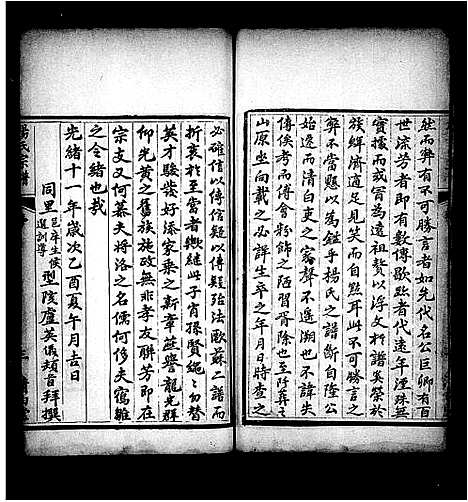 然而弊有不可勝言者如先代名公巨卿有百
世宗芳者即有數傳歇者代遠年湮珠無
實據而冒為遠祖贅以浮文於譜奚榮於
族緜濟適足見笑自點耳此不可勝言之
弊不當懸以為鑑乎楊氏之譜斷自陸公
始遷而清白吏之家聲不遥溯也不諱失
傳俟考而傅會粉飾之陋習胥除也至阡葬之
山原坐向載之必詳生卒之年月日時查之
必確信以傳信疑以傳疑殆法歐蘇二譜而
折衷於至當者歟繼此子孫賢繩繩勿替
英才駿發好添家乗之新章燕譽龍光群
仰先黄之舊族施政無非孝友聯芳即在
宗支又何慕夫將洛之名儒何侈夫寫雒
之令緒也哉
光緒十一年歲次乙酉夏午月吉日
同里邑庠生候選訓導型陵盧英儀頓首拜撰
楊氏宗譜